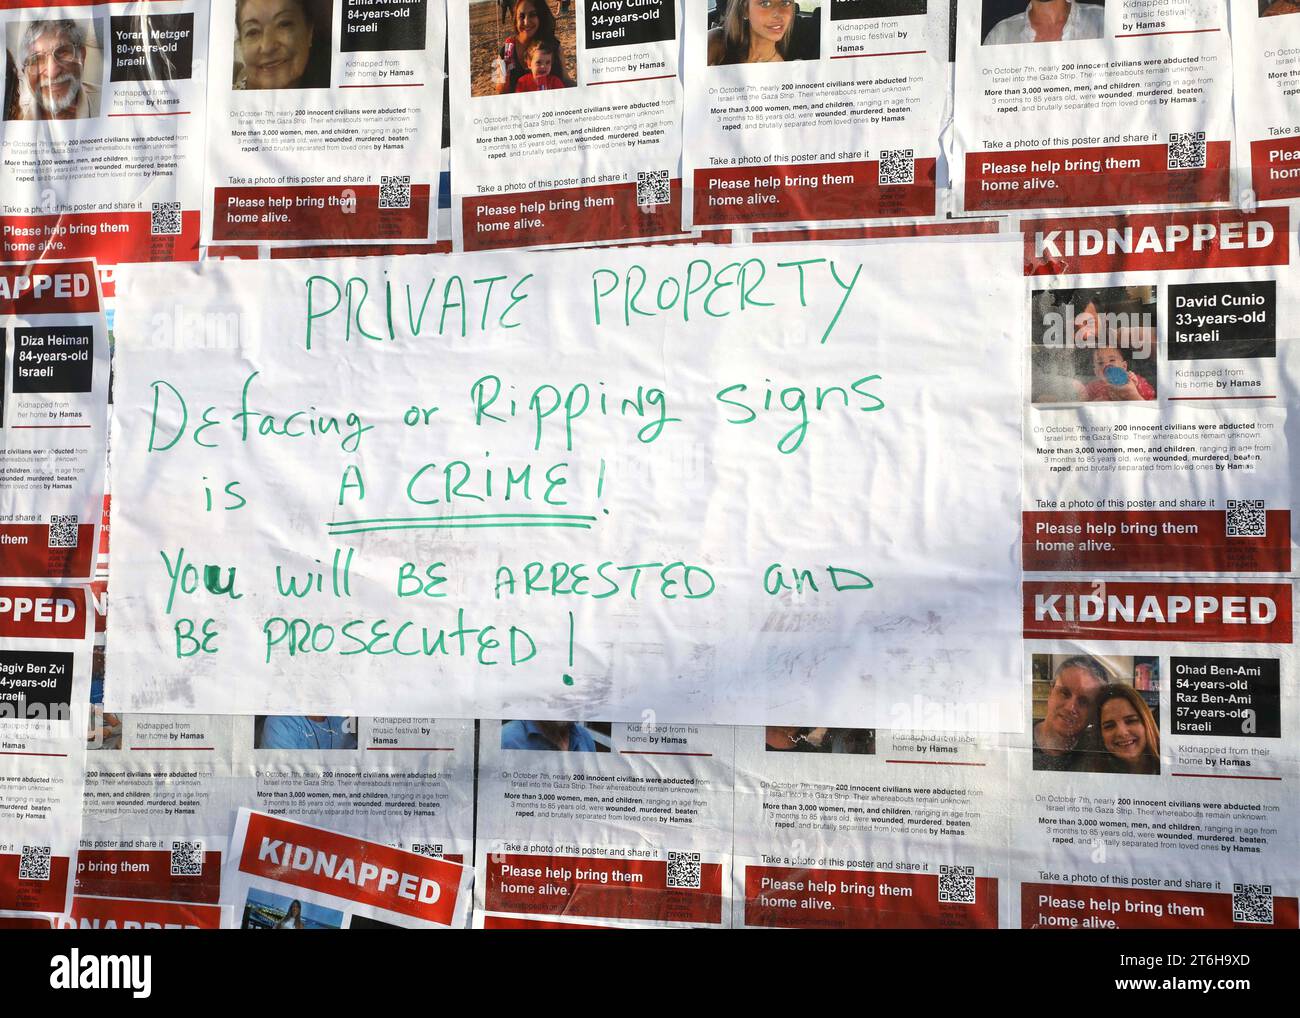 Yoram Metzger
80-years-old
Israeli
Kidnapped from
his home by Hamas
On October 7th, nearly 200 innocent civilians were abducted from
Israel into the Gaza Strip. Their whereabouts remain unknown.
More than 3,000 women, men, and children, ranging in age from
3 months to 85 years old, were wounded, murdered, beaten,
raped, and brutally separated from loved ones by Hamas
Take a photo of this poster and share it
Please help bring them
home alive.
84-years-old
Israeli
Kidnapped from
her home by Hamas
On October 7th, nearly 200 innocent civilians were abducted from
Israel into the Gaza Strip. Their whereabouts remain unknown.
More than 3,000 women, men, and children, ranging in age from
3 months to 85 years old, were wounded, murdered, beaten,
raped, and brutally separated from loved ones by Hamas
Take a photo of this poster and share it
Please help bring them
home alive.
Alony Cunio,
34-years-old
Israeli
Kidnapped from
her home by Hamas
On October 7th, nearly 200 innocent civilians were abducted from
Israel into the Gaza Strip. Their whereabouts remain unknown.
More than 3,000 women, men, and children, ranging in age from
3 months to 85 years old, were wounded, murdered, beaten,
raped, and brutally separated from loved ones by Hamas
Take a photo of this poster and share it
Please help bring them
home alive.
Kidnapped from
a music festival by
Hamas
On October 7th, nearly 200 innocent civilians were abducted from
Israel into the Gaza Strip. Their whereabouts remain unknown.
More than 3,000 women, men, and children, ranging in age from
3 months to 85 years old, were wounded, murdered, beaten,
raped, and brutally separated from loved ones by Hamas
Take a photo of this poster and share it
Please help bring them
home alive.
Kidnapped from
a music festival by
Hamas
On October 7th, nearly 200 innocent civilians were abducted from
Israel into the Gaza Strip. Their whereabouts remain unknown.
More than 3,000 women, men, and children, ranging in age from
3 months to 85 years old, were wounded, murdered, beaten,
raped, and brutally separated from loved ones by Hamas
Take a photo of this poster and share it
Please help bring them
home alive.
PRIVATE PROPERTY
Defacing or Ripping signs
is A CRIME!
You will BE ARRESTED and
BE PROSECUTED!
APPED
Diza Heiman
84-years-old
Israeli
Kidnapped from
her home by Hamas
KIDNAPPED
David Cunio
33-years-old
Israeli
Kidnapped from
his home by Hamas
On October 7th, nearly 200 innocent civilians were abducted from
Israel into the Gaza Strip. Their whereabouts remain unknown.
More than 3,000 women, men, and children, ranging in age from
3 months to 85 years old, were wounded, murdered, beaten,
raped, and brutally separated from loved ones by Hamas
Take a photo of this poster and share it
Please help bring them
home alive.
PPED
Sagiv Ben Zvi
Kidnapped from a
music festival by
Hamas
KIDNAPPED
Ohad Ben-Ami
54-years-old
Raz Ben-Ami
57-years-old
Israeli
Kidnapped from their
home by Hamas
On October 7th, nearly 200 innocent civilians were abducted from
Israel into the Gaza Strip. Their whereabouts remain unknown.
More than 3,000 women, men, and children, ranging in age from
3 months to 85 years old, were wounded, murdered, beaten,
raped, and brutally separated from loved ones by Hamas
Take a photo of this poster and share it
Please help bring them
home alive.
Kidnapped from
her home by Hamas
Kidnapped from a
music festival by
Hamas
Kidnapped from his
home by Hamas
Kidnapped from their
home by Hamas
Take a photo of this poster and share it
Please help bring them
home alive.
Take a photo of this poster and share it
Please help bring them
home alive.
KIDNAPPED
KIDNAPPED
alamy
Image ID: 2T6H9XD
www.alamy.com